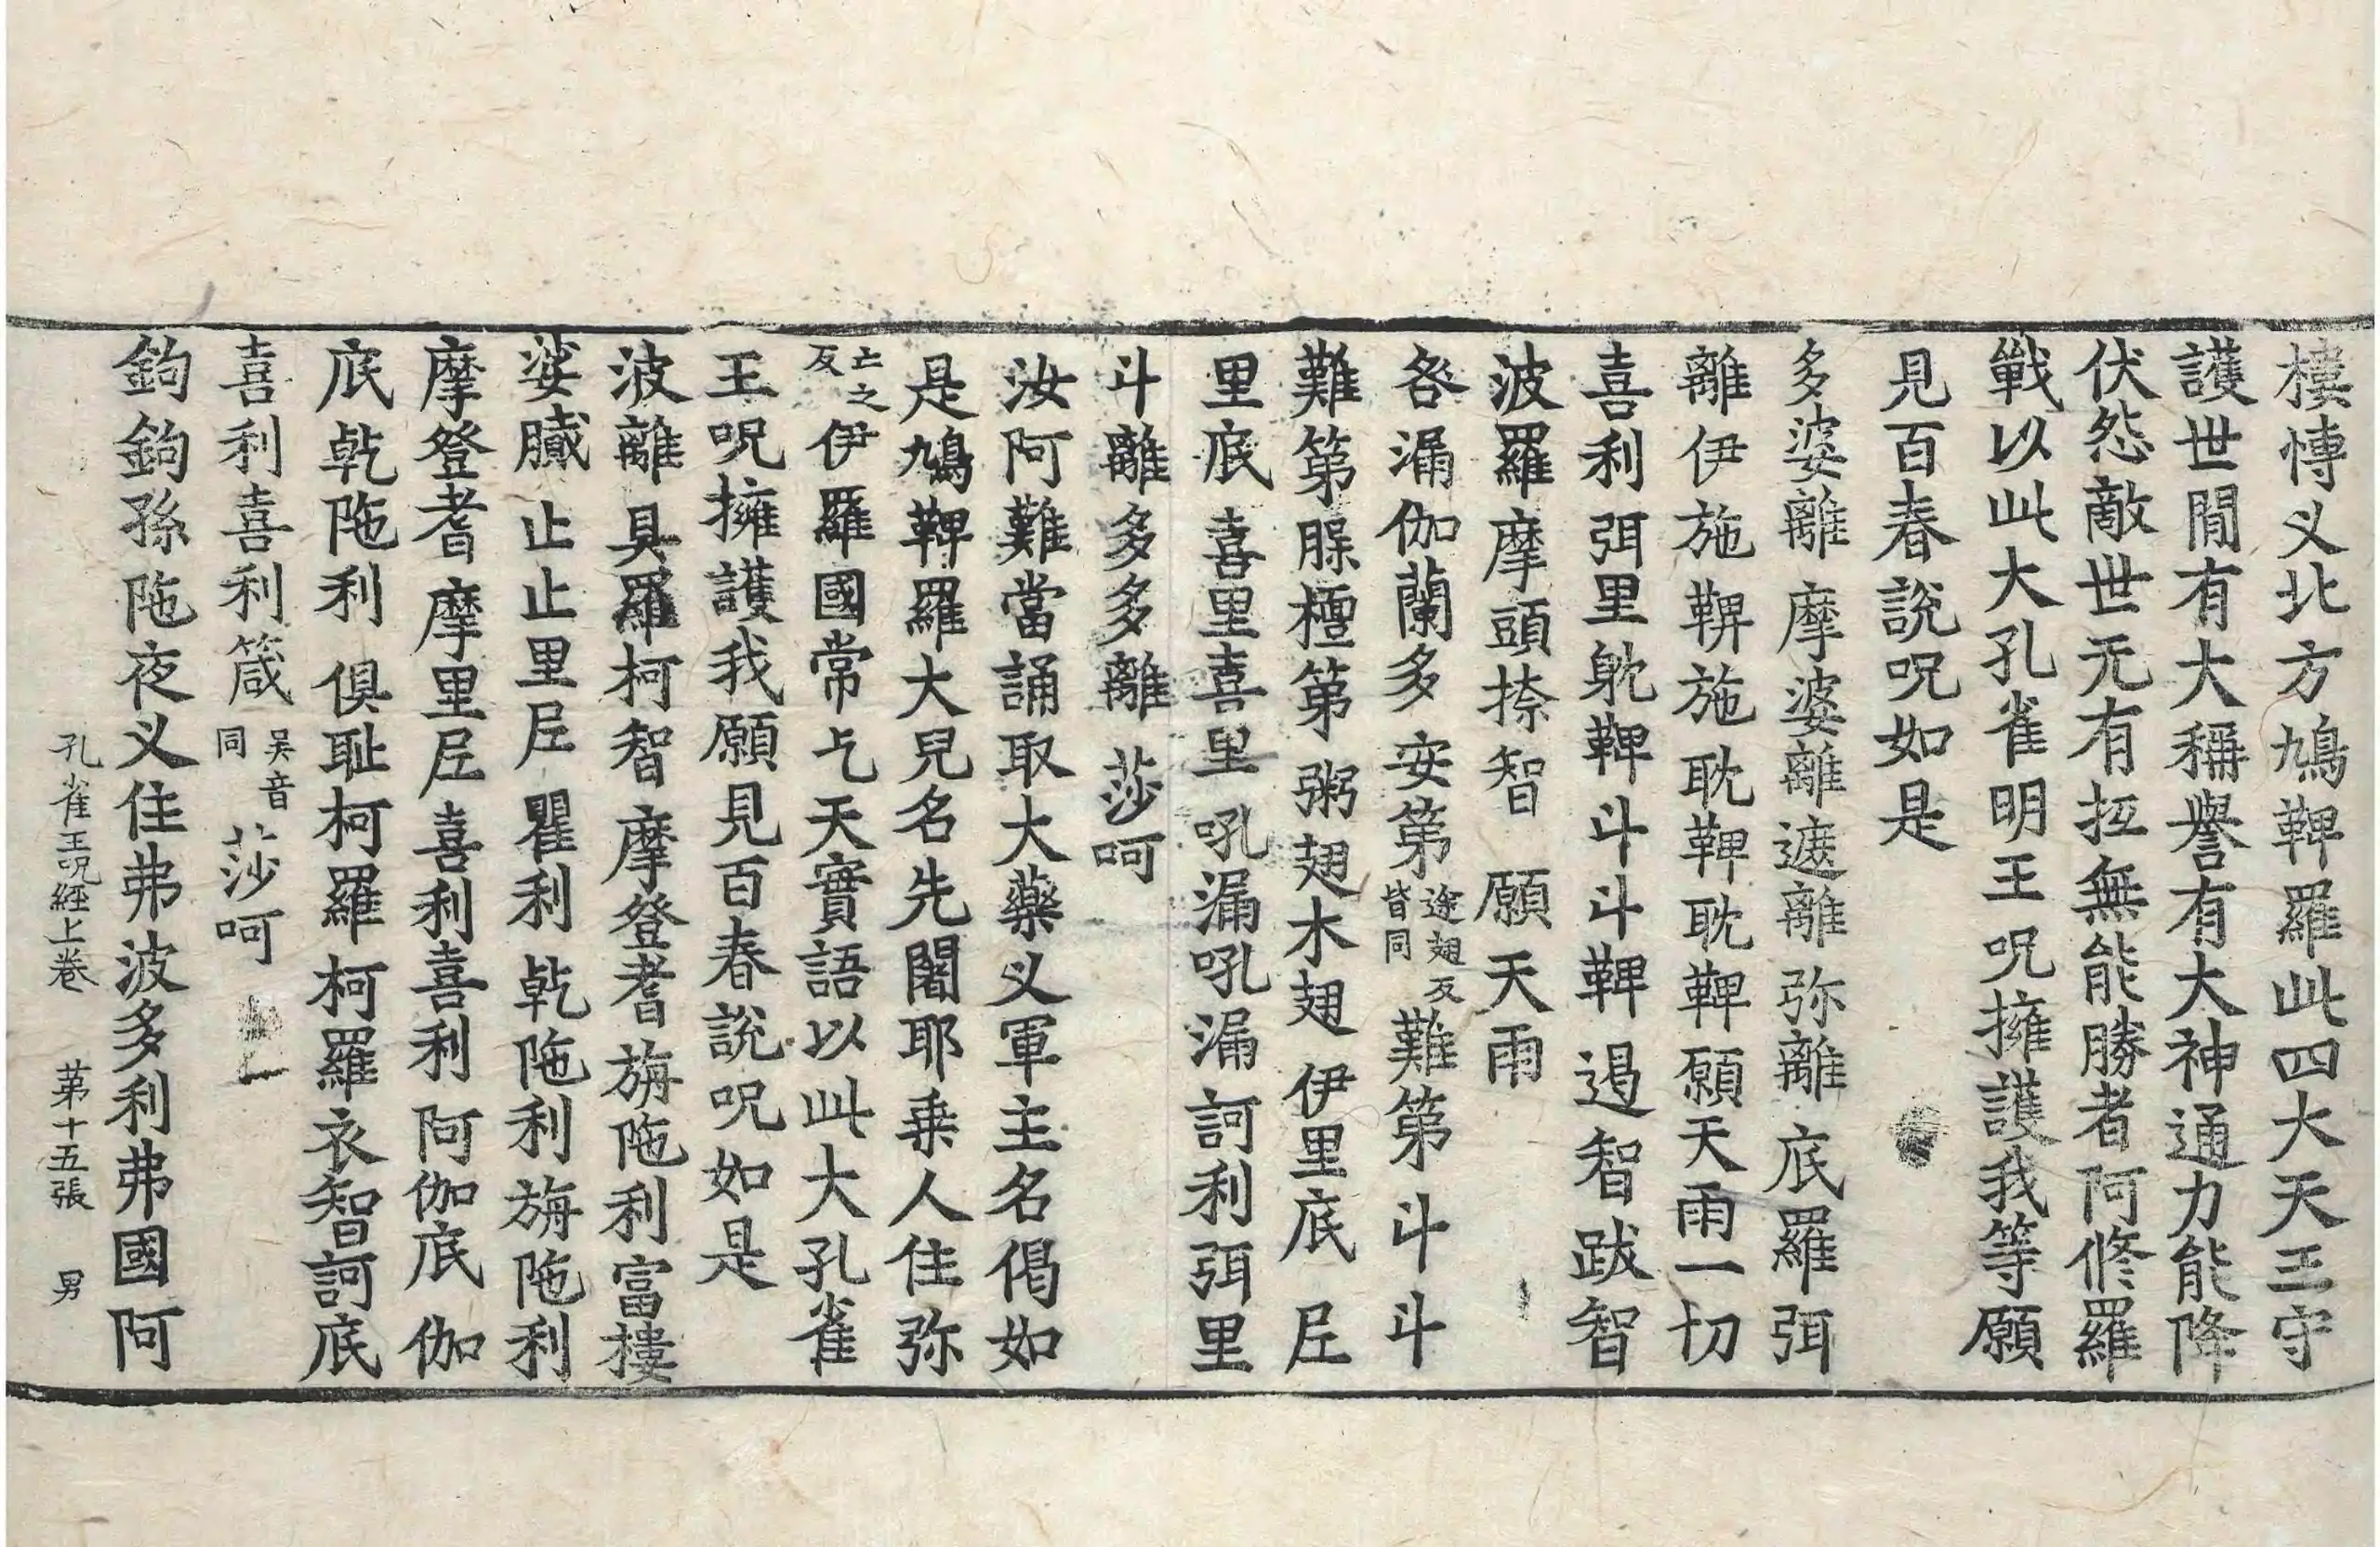 樓愽义北方鳩鞞羅此四大天王守
護世閒有大稱譽有大神通力能降
伏怨敵世无有抂無能勝者阿修羅
戰以此大孔雀明王呪擁護我等願
見百春說呪如是
多婆離 摩婆離遮離 弥離 底羅弭
離伊施鞞施耽鞞耽鞞願天雨一切
喜利弭里躭鞞斗斗鞞 遏智跋智
波羅摩頭捺智 願天雨
咎漏伽蘭多 安第途翅反皆同難第斗斗
難第腂橿第 粥翅木翅 伊里底 𡰱
里底 喜里喜里 吼漏吼漏訶利弭里
斗離多多離 莎呵
汝阿難當誦取大藥义軍主名偈如
是鳩鞞羅大兒名先闍耶乗人住弥
亡之反伊羅國常乞天實語以此大孔雀
王呪擁護我願見百春說呪如是
波離 具羅柯智 摩登耆 旃陁利富樓
娑膱 止止里𡰱 瞿利 乾陁利 旃陁利
摩登耆 摩里𡰱 喜利喜利 阿伽底 伽
底 乾陁利 俱耻柯羅 柯羅衣智訶底
喜利喜利箴吴音同 莎呵
鉤鉤孫陁夜义住弗波多利弗國阿
孔雀王呪經上卷 苐十五張 男